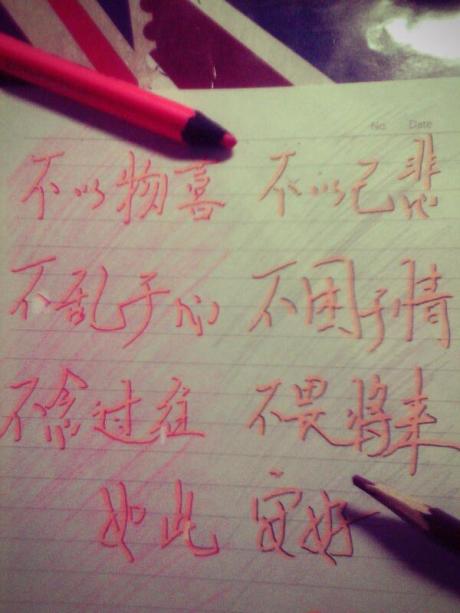 No. Date
不以物喜 不以己悲
不乱于心 不困于情
不念过往 不畏将来
如此 安好